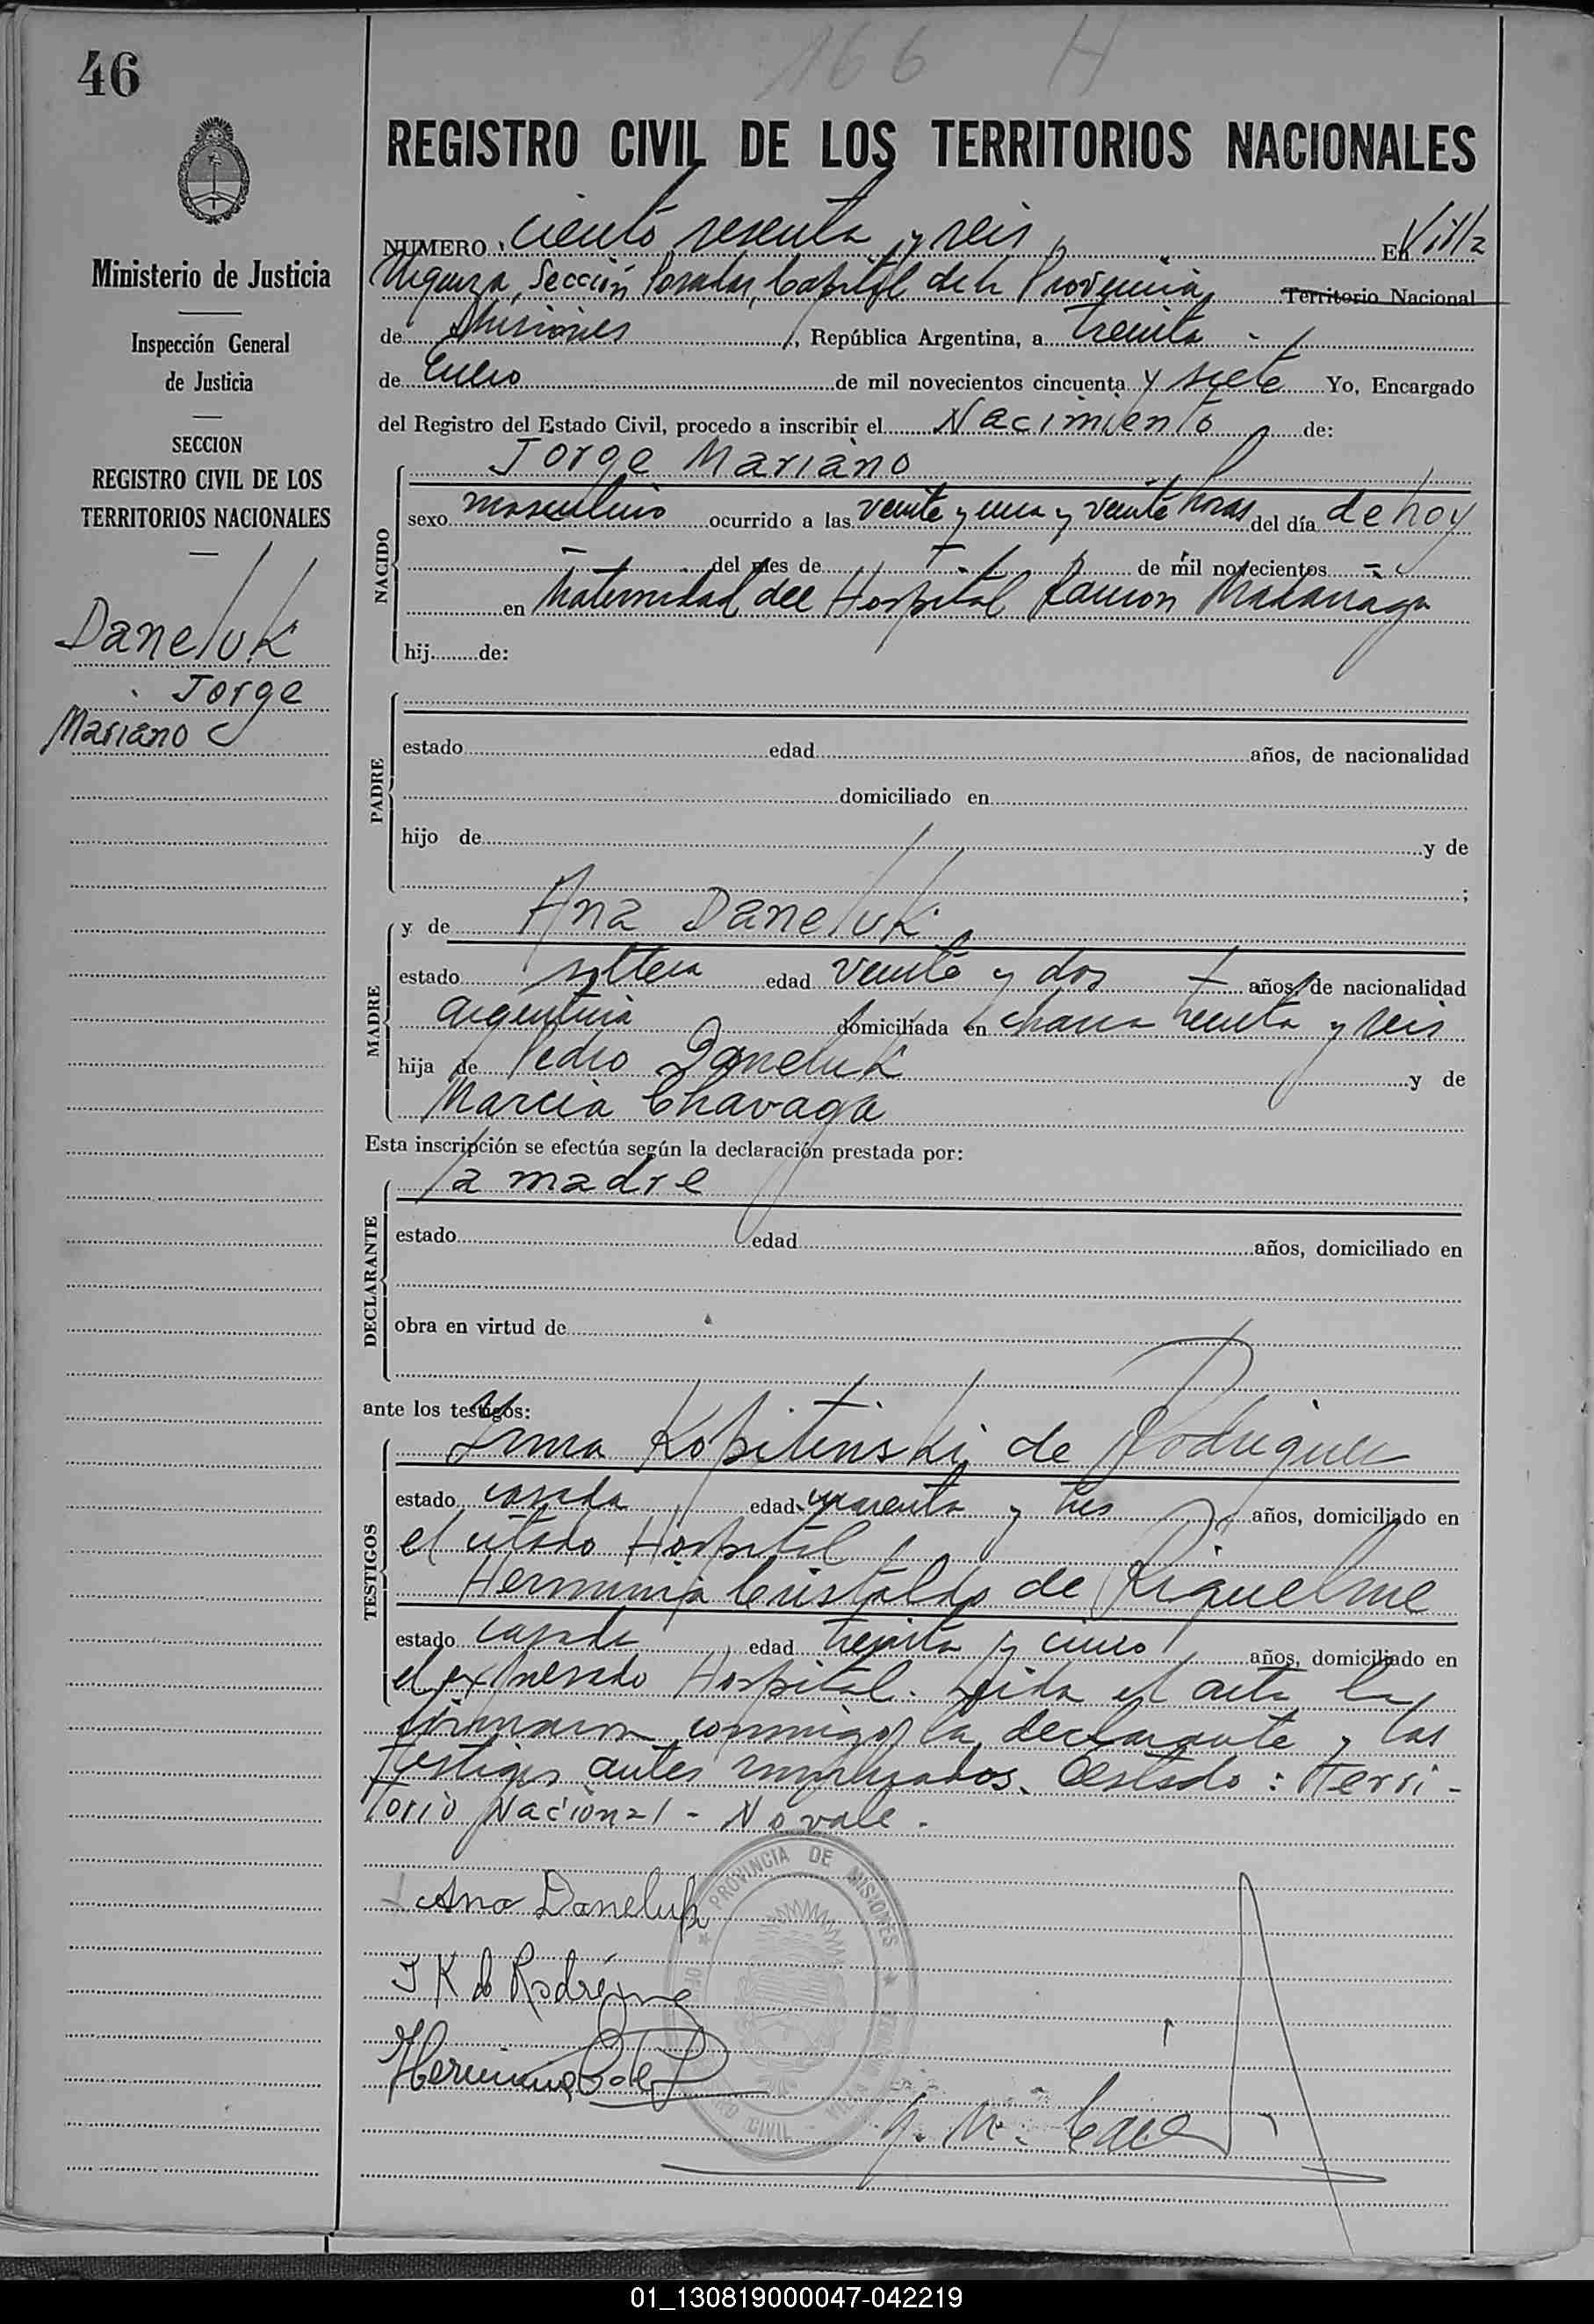 166 H
46
REGISTRO CIVIL DE LOS TERRITORIOS NACIONALES
Ministerio de Justicia
Inspección General
de Justicia
SECCION
REGISTRO CIVIL DE LOS
TERRITORIOS NACIONALES
Daneluk
Jorge
Mariano
NUMERO ciento sesenta y seis En Villa
Urquiza, Sección Posadas, Capital de la Provincia Territorio Nacional
de Misiones, República Argentina, a treinta
de Enero de mil novecientos cincuenta y siete Yo, Encargado
del Registro del Estado Civil, procedo a inscribir el Nacimiento de:
NACIDO
Jorge Mariano
sexo masculino ocurrido a las veinte y una y veinte horas del día de hoy
del mes de de mil novecientos
en Maternidad del Hospital Ramon Madariaga
hij de:
PADRE
estado edad años, de nacionalidad
domiciliado en
hijo de y de
;
MADRE
y de Ana Daneluk
estado soltera edad veinte y dos años, de nacionalidad
argentina domiciliada en chacra treinta y seis
hija de Pedro Daneluk y de
Marcia Chavaga
Esta inscripción se efectúa según la declaración prestada por:
DECLARANTE
la madre
estado edad años, domiciliado en
obra en virtud de
ante los testigos:
TESTIGOS
Irma Kopitinski de Rodriguez
estado casada edad cuarenta y tres años, domiciliado en
el citado Hospital
Herminia Cristaldo de Riquelme
estado casada edad treinta y cinco años, domiciliado en
el expresado Hospital. Leida el acta la
firmaron conmigo la declarante y las
testigos antes nombrados. Testado: Terri-
torio Nacional - No vale.
Ana Daneluk
I K de Rodríguez
PROVINCIA DE MISIONES
CIVIL
01_130819000047-042219